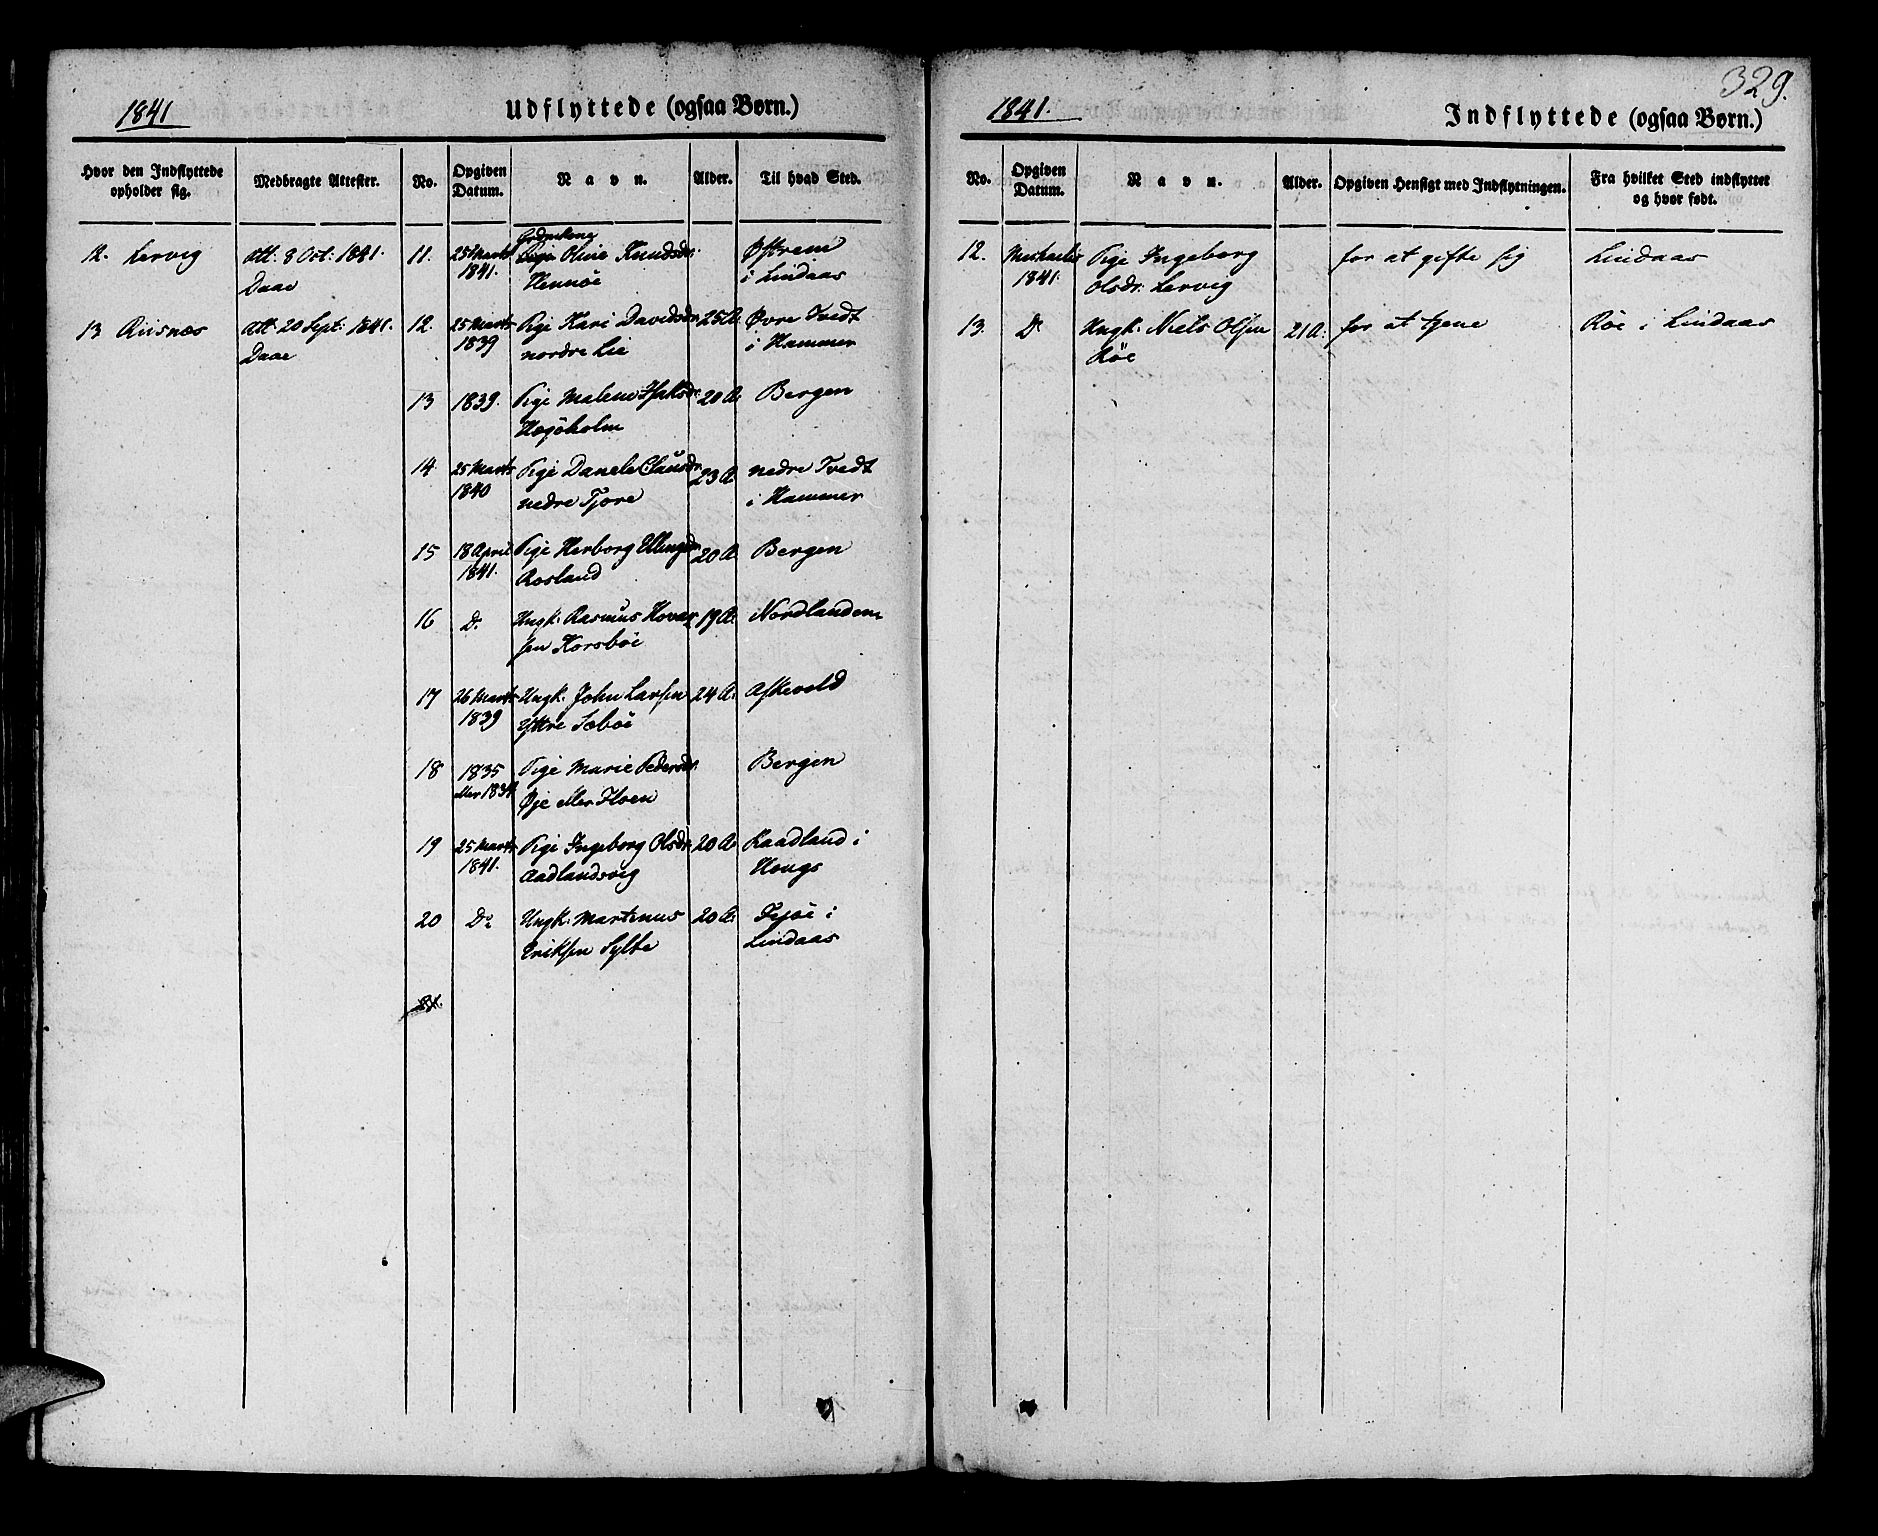 1841
Udflyttede (ogsaa Børn.)
Hvor den Indflyttede opholder sig.
Medbragte Attester.
No.
Opgiven Datum.
Navn.
Alder.
Til hvad Sted.
12. Lervig
Att: 8 Oct: 1841.
Daae
13 Riisnæs
Att: 20 Sept: 1841.
Daae
11. 25 Marts Pige Olivie Knudsdr: Østrem
1841. Hennöe i Lindaas
12. 25 Marts Pige Kari Davidsdr 25 A: Øvre Tvedt
1839 nordre Lie i Hammer
13 1839. Pige Malene Isaksdr 20 A Bergen
Hegöholm
14 25 Marts Pige Danele Clausdr 23 A nedre Tvedt
1840 nedre Tjore i Hammer
15 18 April Pige Herborg Ellingsdr 20 A Bergen
1841. Rosland
16 Do Ungk: Rasmus Hovar 19 A: Nordlanden
sen Korsböe
17 26 Marts Ungk: John Larsen 24 A: Askevold
1839 Yttre Sæböe
18 1835 Pige Marie Pedersdr: Bergen
eller 1834 Øje eller Floen
19 25 Marts Pige Ingeborg Olsdr 20 A: Raadland i
1841. Aadlandsvig Hougs
20 Do Ungk: Martenus 20 A: Fejöe i
Eriksen Sylte Lindaas
21.
329.
1841.
Indflyttede (ogsaa Børn.)
No.
Opgiven Datum.
Navn.
Alder.
Opgiven Hensigt med Indflytningen.
Fra hvilket Sted indflyttet og hvor født.
12. Michaelis Pige Ingeborg for at gifte sig Lindaas
1841. Olsdr: Lervig
13. Do Ungk: Niels Olsen 21 A: for at tjene Röe i Lindaas
Röe